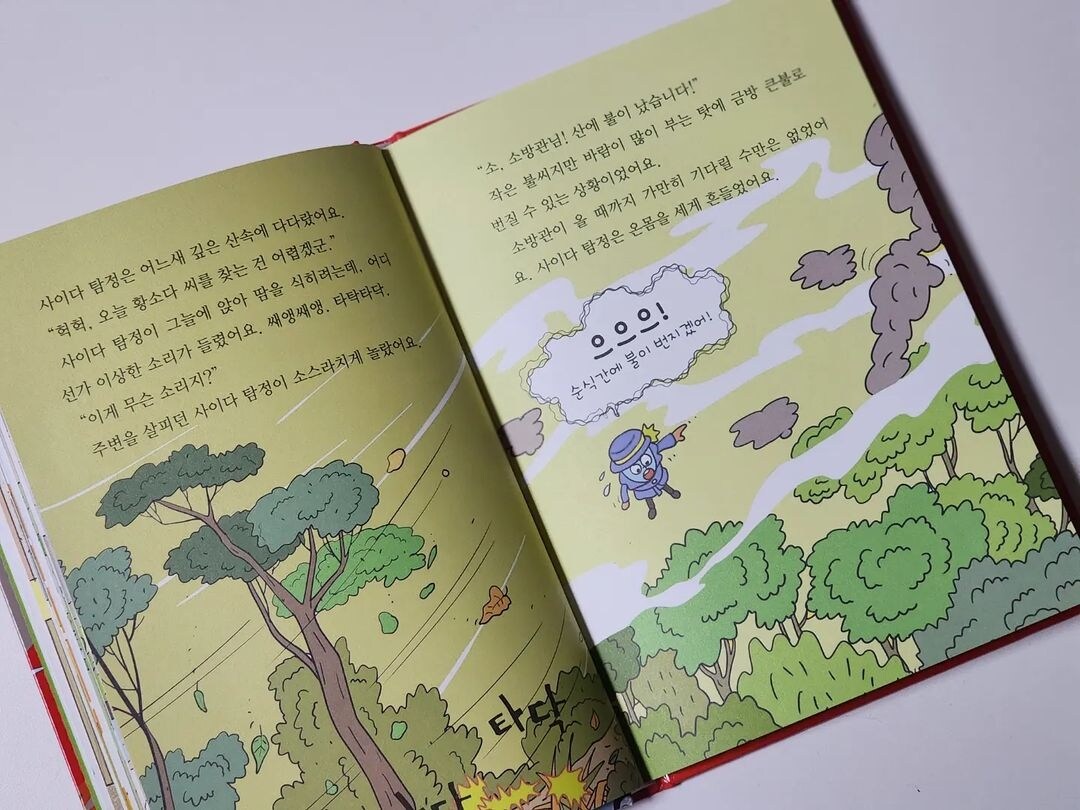 사이다 탐정은 어느새 깊은 산속에 다다랐어요.
“허허, 오늘 황소다 씨를 찾는 건 어렵겠군.”
사이다 탐정이 그늘에 앉아 땀을 식히려는데, 어디
선가 이상한 소리가 들렸어요. 쌔앵쌔앵. 타탁타닥.
“이게 무슨 소리지?”
주변을 살피던 사이다 탐정이 소스라치게 놀랐어요.
타닥
“소, 소방관님! 산에 불이 났습니다!”
작은 불씨지만 바람이 많이 부는 탓에 금방 큰불로
번질 수 있는 상황이었어요.
소방관이 올 때까지 가만히 기다릴 수만은 없었어
요. 사이다 탐정은 온몸을 세게 흔들었어요.
으으의!
순식간에 불이 번지겠어!